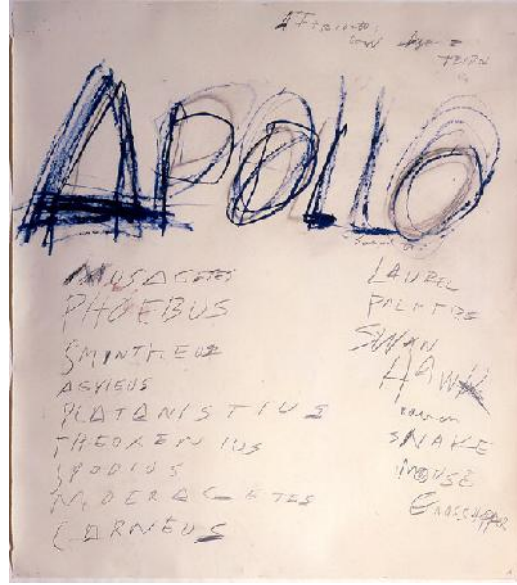 APOLLO
MUSAGETES
PHOEBUS
SMINTHEUS
AGYIEUS
PLATANISTIUS
THEOXENIUS
SPODIUS
MOERAGETES
CARNEUS
LAUREL
PALM TREE
SWAN
HAWK
raven
SNAKE
MOUSE
GRASSHOPPER